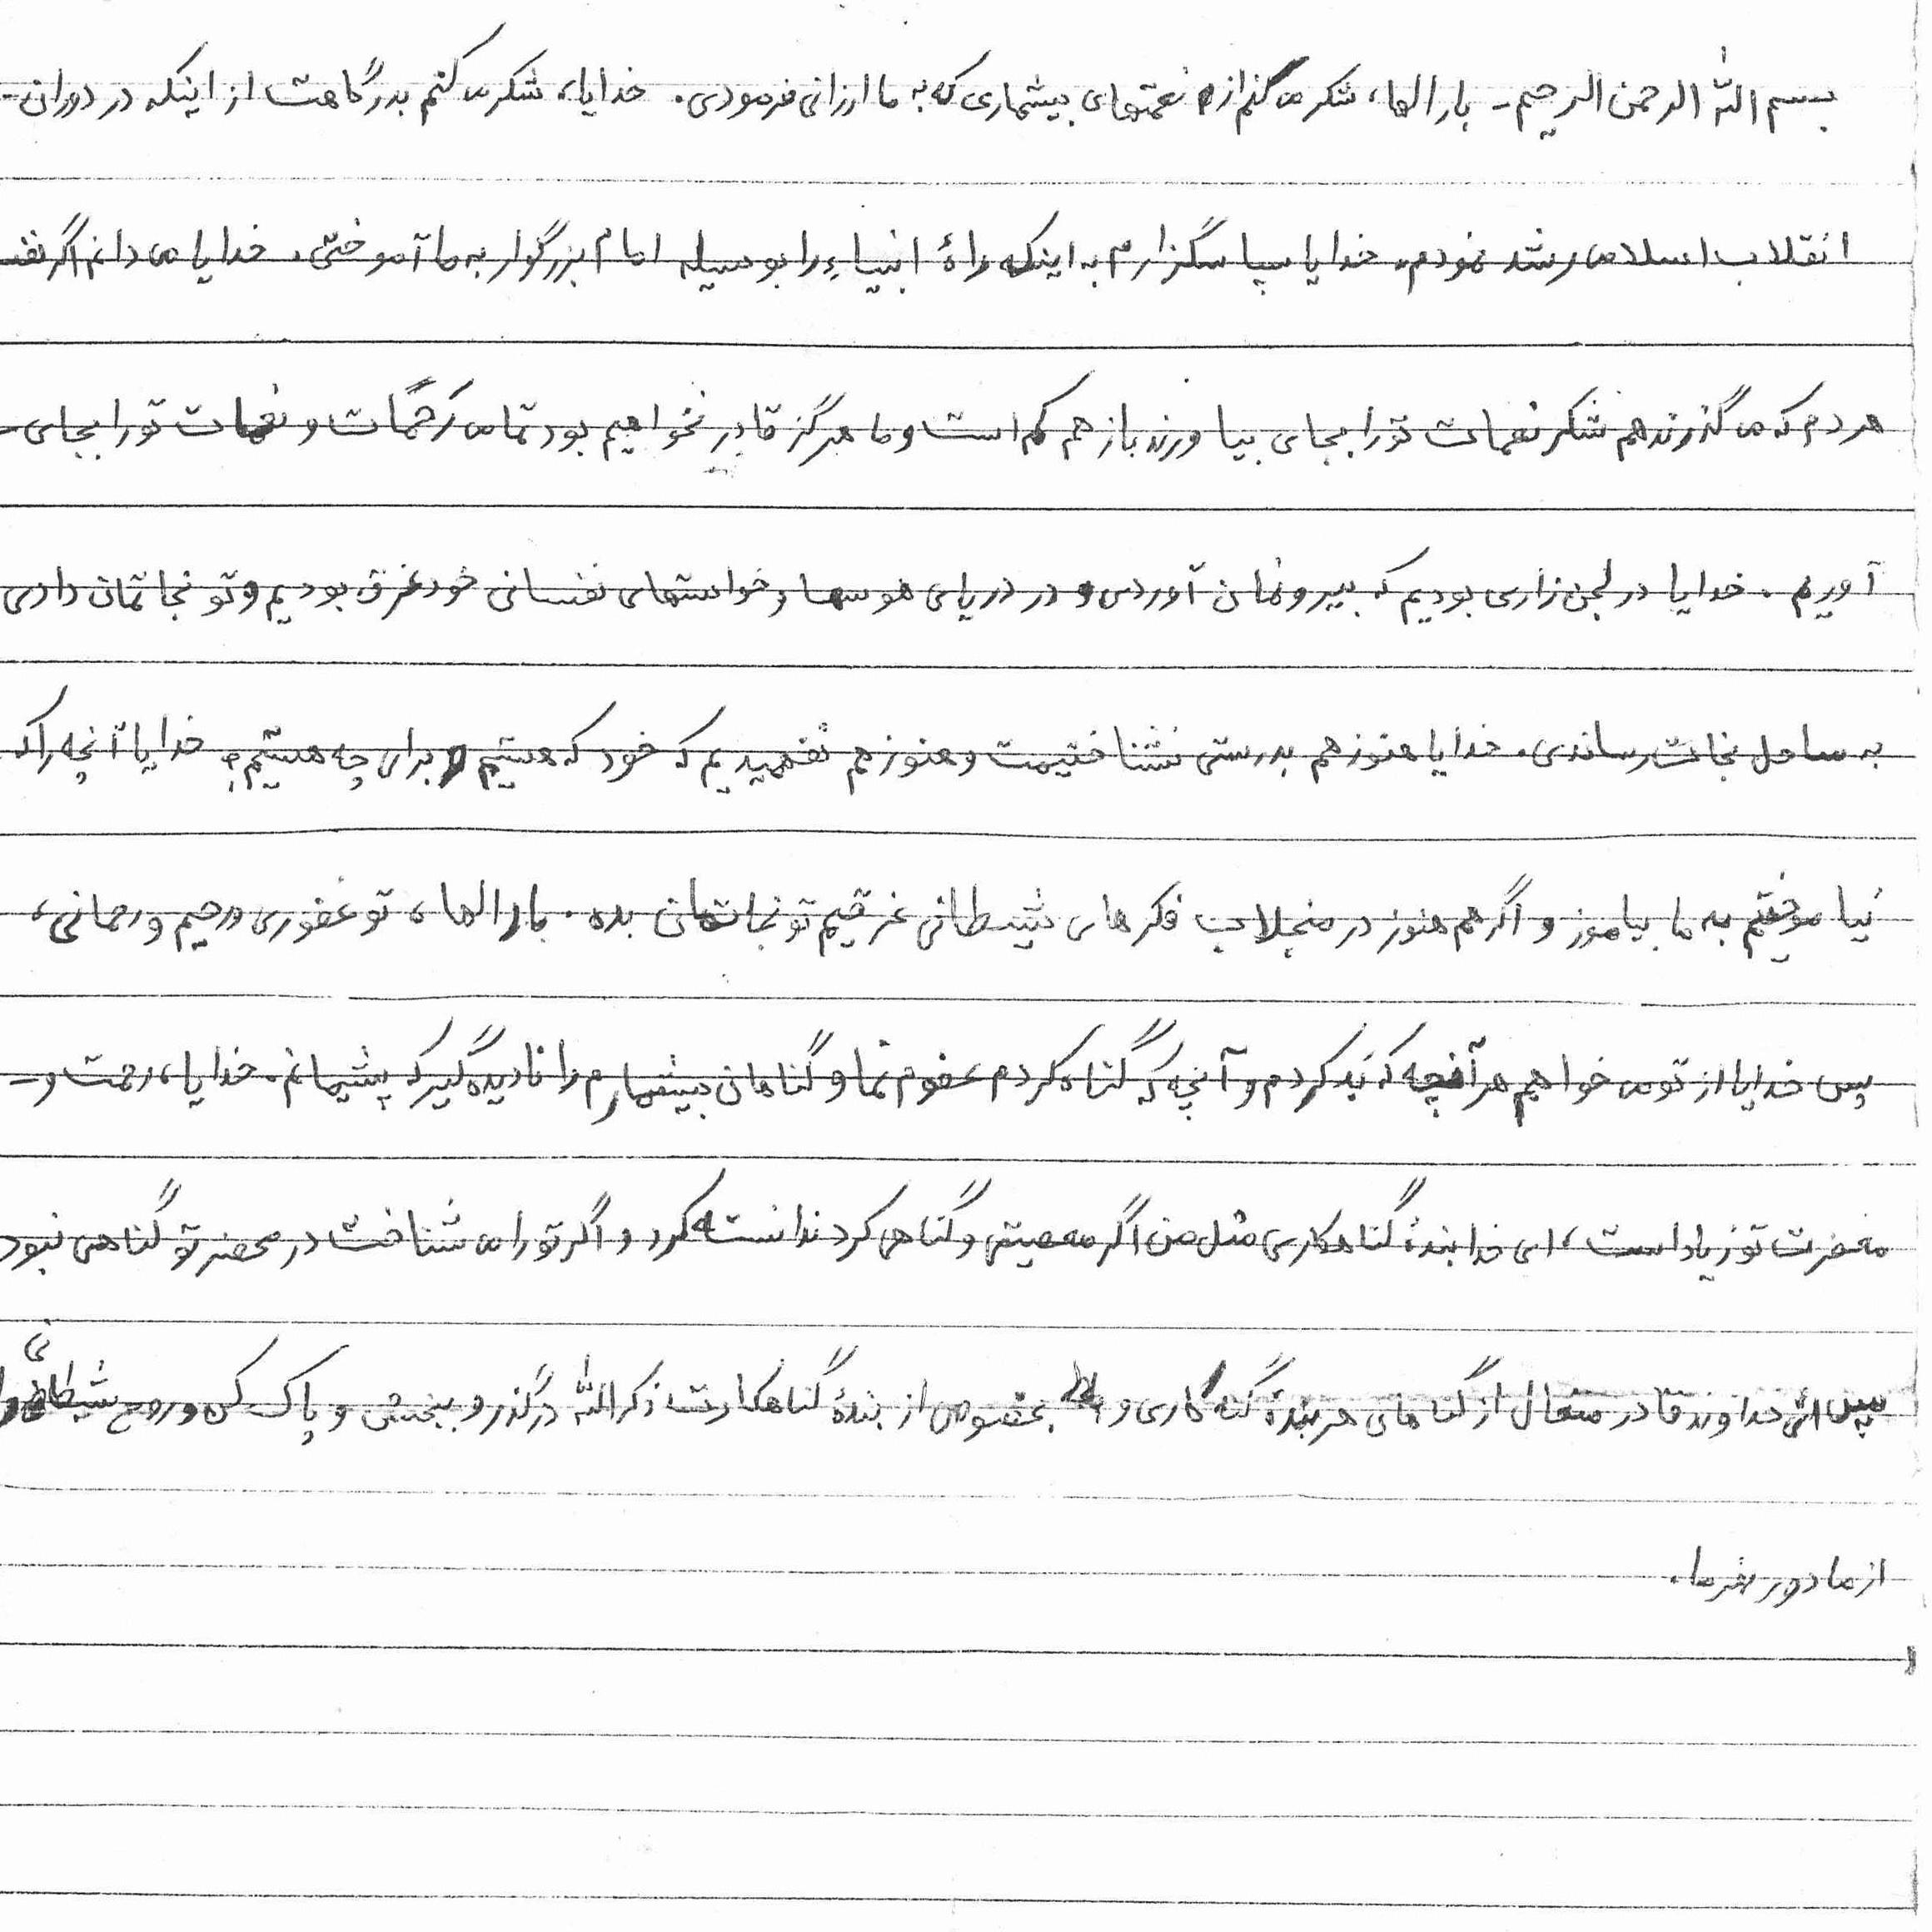 بسم الله الرحمن الرحیم - بارالها، شکر می کنم از نعمتهای بیشماری که به ما ارزانی فرمودی. خدایا، شکر می کنم بدرگاهت از اینکه در دوران -
انقلاب اسلامی رشد نمودم. خدایا سپاسگزارم به اینکه راهٔ انبیاء را بوسیله امام بزرگوار به ما آموختی. خدایا می دانم اگر
هر دم که می گذرند هم شکر نعمات تو را بجای بیاورند باز هم کم است و ما هرگز قادر نخواهیم بود تمامی رَحَمات و نعمات تو را بجای -
آوریم. خدایا در لجن زاری بودیم که بیرونمان آوردی و در دریای هوسها و خواستهای نفسانی خود غرق بودیم و تو نجاتمان دادی
به ساحل نجات رساندی. خدایا هنوز هم بدرستی نشناختیمت و هنوز هم نفهمیدیم که خود که هستیم و برای چه هستیم؟ خدایا آنچه را که
نیاموختیم به ما بیاموز و اگر هم هنوز در منجلاب فکرهای شیطانی غرقیم تو نجاتمان بده. بارالها، تو غفوری و رحیم و رحمانی،
پس خدایا از تو می خواهیم هر آنچه که بَد کردم و آنچه که گناه کردم عفوم نما و گناهان بیشمارم را نادیده گیر که پشیمانم. خدایا، رحمت و -
مغفرت تو زیاد است، ای خدا بندهٔ گناهکاری مثل من اگر معصیتی و گناهی کرد ندانسته کرد و اگر تو را می شناخت در محضر تو گناهی نبود
پس ای خداوند قادر متعال از گناهای هر بندهٔ گنه کاری و بخصوص از بندهٔ گناهکارت ذکرالله درگذر و ببخش و پاک کن و روح شیطانی را
از ما دور بفرما.